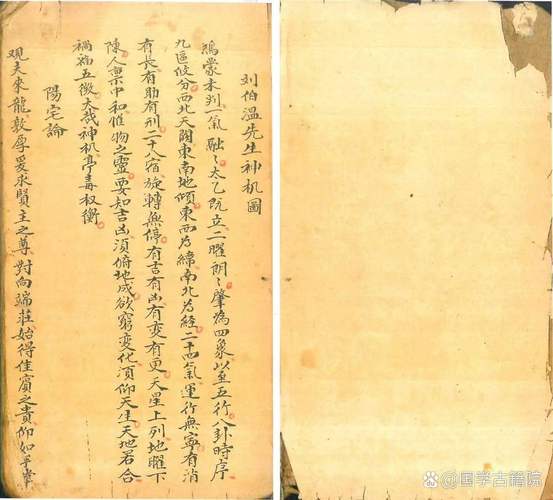 刘伯温先生神机圖
鴻蒙未判一氣融〻太乙既立二曜朗〻肇為四象以至五行八卦時序
九區攸分西北天闕東南地傾東西為緯南北為經二十四氣運行無寧有消
有長有助有刑二十八宿旋轉無停有吉有凶有变有更天星上列地曜下
陳人禀中和惟物之靈要知吉凶須俯地成欲窮变化須仰天生天地君合
禍福五徵大哉神机亭毒权衡
陽宅論
观夫來龍敦厚爰求賢主之尊對向端莊始得佳賓之貴仰如手掌
国学古籍院